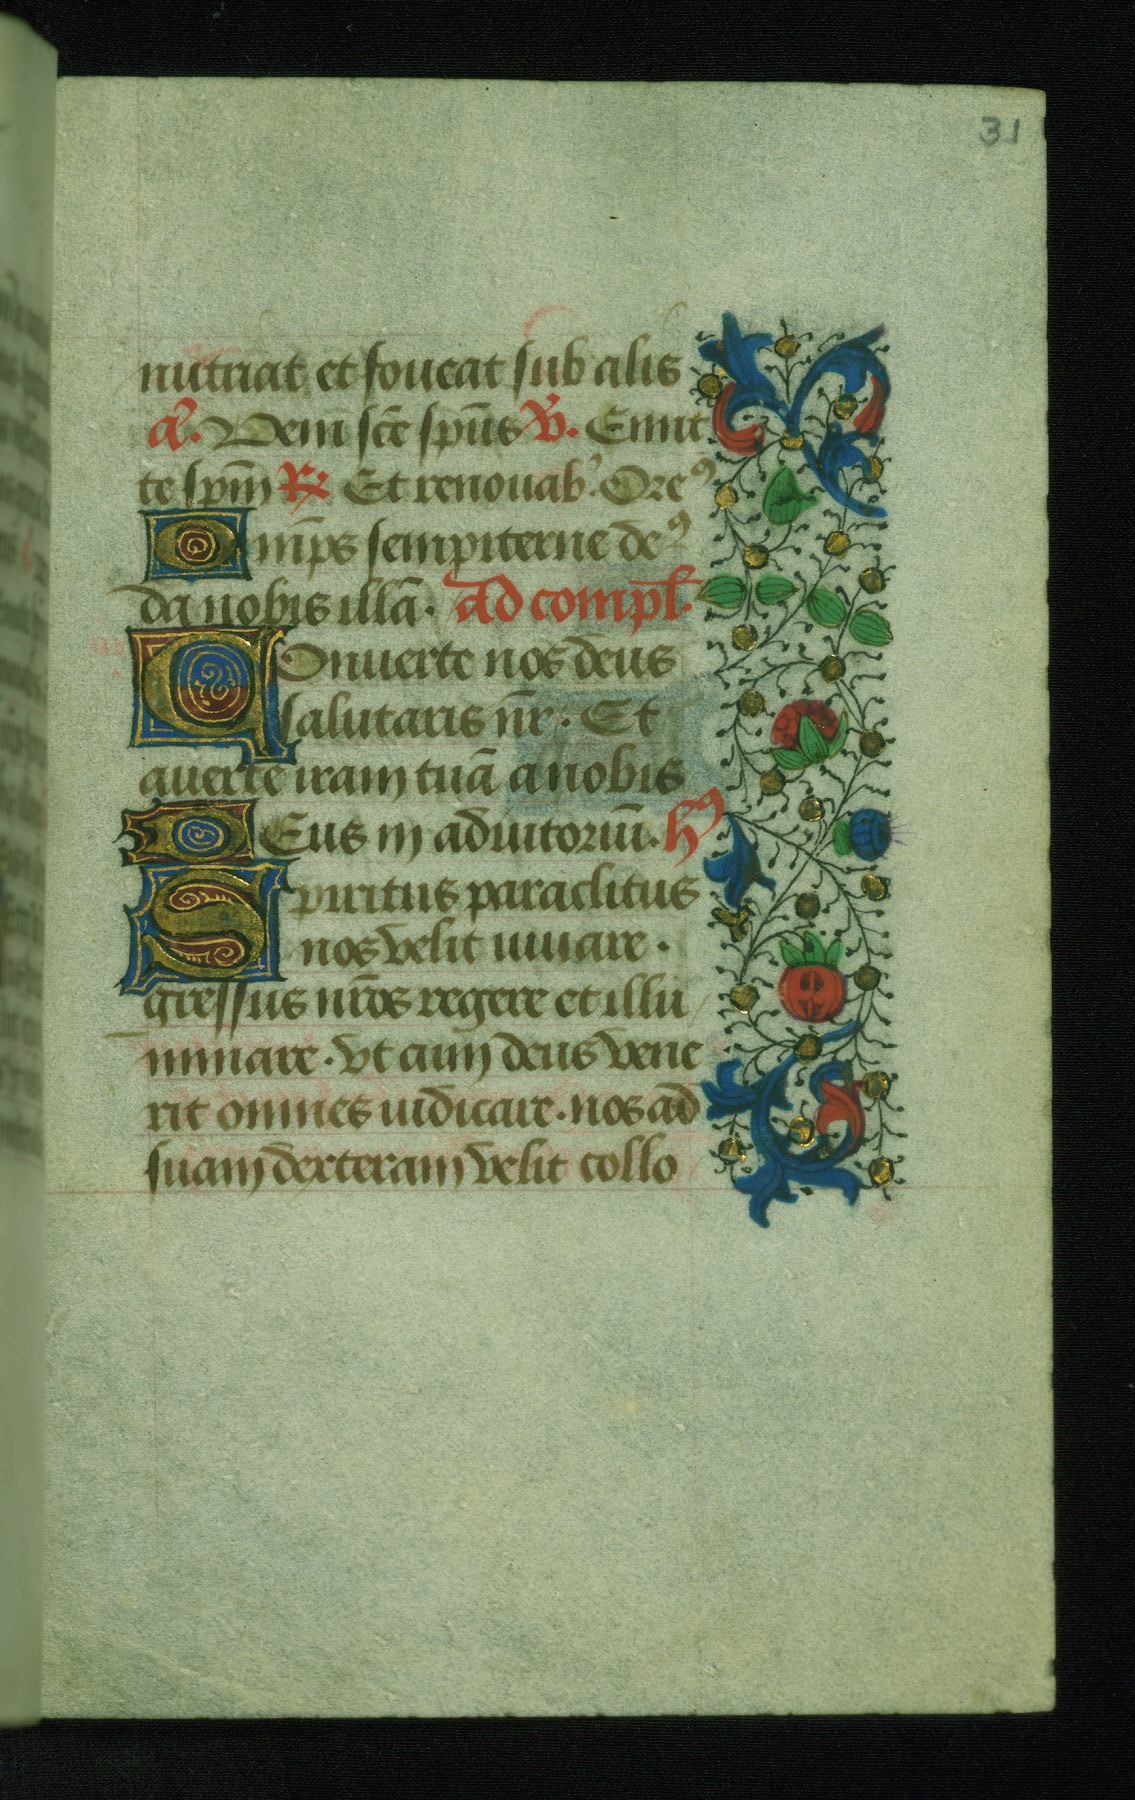 31
nutriat et foueat sub alis
a᷒. Veni sc̄e sp̄us V̄. Emit
te sp̄m ℟ Et renouab᾽. Oreꝰ
Om̄ps sempiterne deꝰ
da nobis illā. ad compl̄.
Conuerte nos deus
salutaris nr̄. Et
auerte iram tuā a nobis
Deus in adiutoriū. hꝰ
Spiritus paraclitus
nos velit iuuare.
gressus nr̄os regere et illu
minare. vt cum deus vene
rit omnes iudicare. nos ad
suam dexteram velit collo